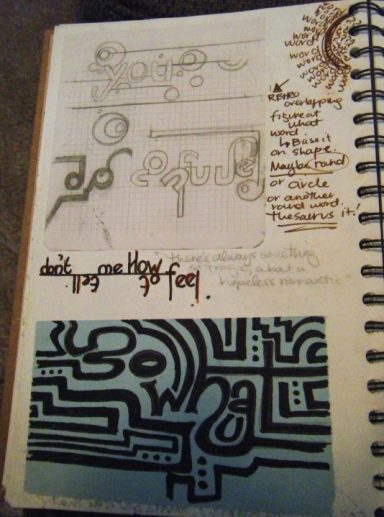 word word word word
word word word
word word
you
RETRO
overlapping
figure out
what
word.
↳ Base it
on shape.
Maybe round
or circle
or another
'round word.
Thesaurus it!
do
don't tell me How to feel.
"There's always something
so tragic about a
hopeless romantic"
So
what